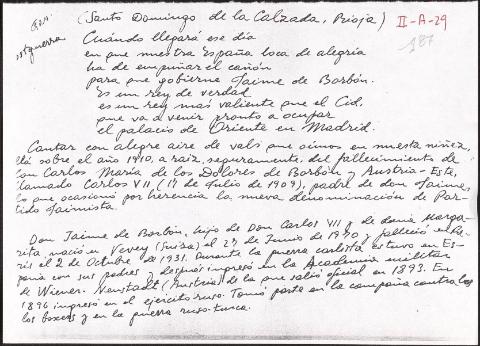 (Santo Domingo de la Calzada, Rioja) II-A-29
187
Cuándo llegará ese día
en que nuestra España loca de alegría
ha de empuñar el cañón
para que gobierne Jaime de Borbón.
Es un rey de verdad
es un rey más valiente que el Cid,
que va a venir pronto a ocupar
el palacio de Oriente en Madrid.
Cantar con alegre aire de vals que oimos en nuestra niñez,
allá sobre el año 1910, a raíz, seguramente, del fallecimiento de
don Carlos María de los Dolores de Borbón y Austria-Este,
llamado Carlos VII, (17 de Julio de 1909), padre de don Jaime,
lo que ocasionó por herencia la nueva denominación de Par-
tido Jaimista.
Don Jaime de Borbón, hijo de Don Carlos VII y de doña Marga-
rita, nació en Vevey (Suiza) el 27 de Junio de 1870 y falleció en Pa-
rís el 2 de Octubre de 1931. Durante la guerra carlista estuvo en Es-
paña con sus padres y después ingresó en la Academia militar
de Wiener-Neustadt (Austria) de la que salió oficial en 1893. En
1896 ingresó en el ejército ruso. Tomó parte en la campaña contra los
los boxers y en la guerra ruso-turca.